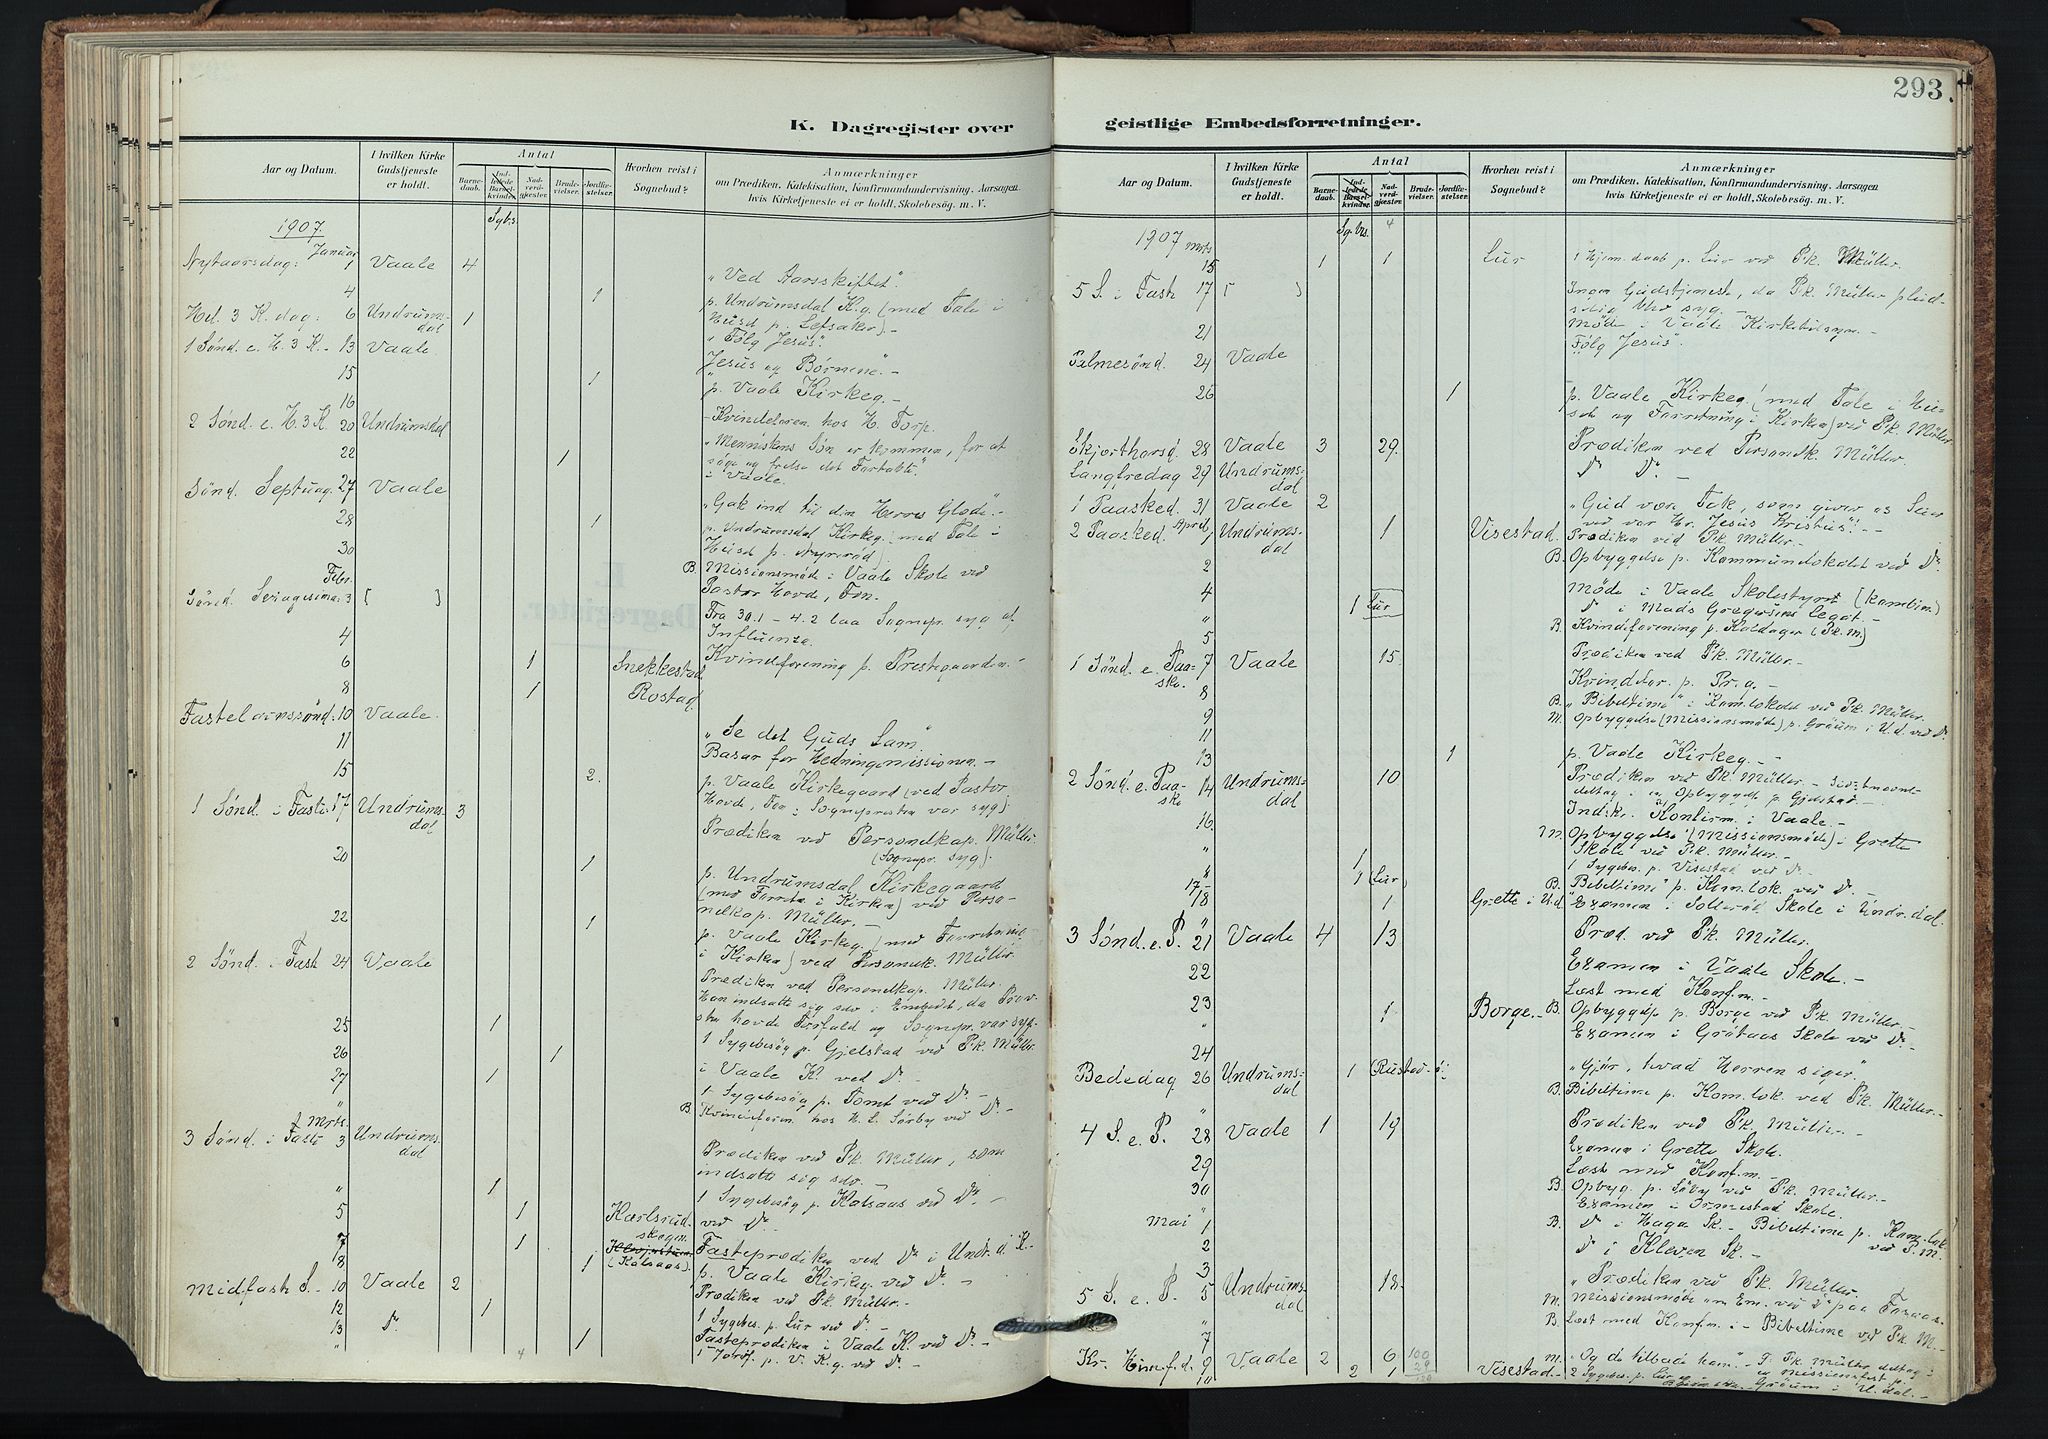 293.
K. Dagregister over
geistlige Embedsforretninger.
Aar og Datum.
I hvilken Kirke Gudstjeneste er holdt.
Antal
Barnedaab.
Indledede Barselkvinder.
Nadverdgjester.
Brudevielser.
Jordfæstelser.
Hvorhen reist i Sognebud?
Anmærkninger
om Prædiken, Katekisation, Konfirmandundervisning, Aarsagen
hvis Kirketjeneste ei er holdt, Skolebesøg. m. V.
1907
Sgbs.
Januar
Nytaarsdag: 1 Vaale 4
"Ved Aarsskiftet".
4 1
p. Undrumsdal K.g. (med Tale i
Hel. 3 K. dag: 6 Undrumsdal 1
Huset p. Lefsaker) -
1 Sønd. e. H. 3 K. - 13 Vaale
"Følg Jesus".
15 1
Jesus og Børnene. -
16
p. Vaale Kirkeg. -
2 Sønd. e. H. 3 K. 20 Undrumsdal
Kvindeforen. hos H. Torp.
22 1
"Menneskens Søn er kommen, for at
søge og frelse det Fortabte"
Sønd. Septuag. 27 Vaale
i Vaale.
28 1
"Gak ind til din Herres Glæde". -
p. Undrumsdal Kirkeg. med Tale i
30
Febr.
B. Missionsmøde i Vaale Skole ved
Sønd. Sexagesima: 3 [ ]
Pastor Hovde, Fon.
Fra 30.1 - 4.2 laa Sognepr. syg af
4
Influenza.
6 1 Snekkestad
Kvindforening p. Prestegaarden. -
8 1 Rostad.
Fastelavnssønd: 10 Vaale.
"Se det Guds Lam"
11
Basar for Hedningemissionen. -
15 2.
p. Vaale Kirkegaard (ved Pastor
1 Sønd. i Faste 17 Undrumsdal 3
Prædiken ved Personelkap. Müller.
(Sognepr. syg).
20 1
p. Undrumsdal Kirkegaard
(med Forretn. i Kirken) ved Personelkap. Müller. -
22 1
p. Vaale Kirkeg. (med Forretning
i Kirken) ved Personelk. Müller.
2 Sønd. i Fast 24 Vaale
Prædiken ved Personelkap. Müller.
Han indsatte sig selv i Embedet, da Provsten havde Forfald og Sognepr. var syg.
25 1
1 Sygebesøg p. Gjelstad ved P.k. Müller.
26 1
i Vaale K. ved Do. -
27 1
1 Sygebesøg p. Tomt ved Do. -
"
B. Kvindeforen. hos H. L. Sørby ved Do. -
Mrts.
3 Sønd. i Faste 3 Undrumsdal
Prædiken ved P.k. Müller, som
indsatte sig selv. -
" 1
1 Sygebesøg p. Kalsaas ved Do. -
5 1 Karlsrudskogen.
ved Do.
7 1 (Kalsaas)
Fasteprædiken ved Do i Undr.d. K. -
8 1
p. Vaale Kirkeg. ved Do. -
Midfaste S. - 10 Vaale 2
Prædiken ved P.k. Müller. -
12 1
1 Sygebes. p. Lur ved Do. -
13 Do.
Fasteprædiken i Vaale K. ved Do. -
" 1
1 Jordf. p. V. K.g. ved Do. -
1907 Mrts.
Sg.bs.
15 1 1 Lur
1 hjem. daab p. Lur ved P.k. Müller.
5 S. i Fast 17 [ ]
Ingen Gudstjeneste, da P.k. Müller pludselig blev syg. -
21
Møde i Vaale Kirketilsyn. -
Palmesønd. 24 Vaale
"Følg Jesus".
26 1
p. Vaale Kirkeg. (med Tale i Huset og Forretning i Kirken) ved P.k. Müller
Skjærthorsd. 28 Vaale 3 29.
Prædiken ved Personelk. Müller.
Langfredag 29 Undrumsdal
Do Do. -
1 Paasked. 31 Vaale 2
"Gud være Tak, som giver os Seier
ved vor Hr. Jesus Kristus"! -
April
2 Paasked. 1 Undrumsdal 1 Visestad.
Prædiken ved P.k. Müller. -
2
B. Opbyggelse p. Kommunelokalet ved Do.
4 1 Lur
Møde i Vaale Skolestyre (kombin.)
"
Do i Mads Gregersens legat. -
5
B. Kvindeforening p. Kaldager (P.k. M.)
1 Sønd. e. Paaske. 7 Vaale 15
Prædiken ved P.k. Müller. -
8
Kvindefor. p. Pr.g. -
9
B. "Bibeltime" i Kom.lokalet ved P.k. Müller.
11
M. Opbyggelse (Missionsmøde) p. Gráum i U.d. ved Do.
13 1
p. Vaale Kirkeg. -
2 Sønd. e. Paaske 14 Undrumsdal 10
Prædiken ved P.k. Müller. -
16.
Indskr. Konfirm. i Vaale. -
" 1
M. Opbyggelse (Missionsmøde) i Grette
Skole ved P.k. Müller. -
1 Sygebes. p. Visestad ved Do. -
17 - 1 (Lur)
B. "Bibeltime" p. Kom.lok. ved Do. -
18 1 Grette i U.d.
Examen i Solerød Skole i Undr.dal.
3 Sønd. e. P. 21 Vaale 4 13
Præd. ved P.k. Müller.
22
Examen i Vaale Skole. -
23 1 Borge. -
Læst med Konf.m. -
"
B. Opbyggelse p. Borge ved P.k. Müller. -
24
Examen i Gråtaas Skole ved Do. -
Bededag 26 Undrumsdal 1 (Rustad.
"Gjør, hvad Herren siger"
"
B. Bibeltime p. Kom.lok. ved P.k. Müller. -
4 S. e. P. 28 Vaale 1 19
Prædiken ved P.k. Müller. -
29
Examen i Grette Skole.
30
Læst med Konf.m. -
B. Opbyg. p. Søby ved P.k. Müller. -
"
Examen i Ormestad Skole.
Mai 1
B. Do i Haga Sk. - Bibeltime p. Kom.lok.
ved P. M.
2
Do i Kleven Sk. -
3
5 S. e. P. 5 Undrumsdal 18.
"Prædiken ved P.k. Müller.
"
7
B. Læst med Konf.m. - Bibeltime ved P.k. M. -
Kr. Himf.d. 9 Vaale 2 6
M. "Og de tilbade ham". -
10 2 1 Visestad. -
2 Sygebes. p. Lur
100
29
129